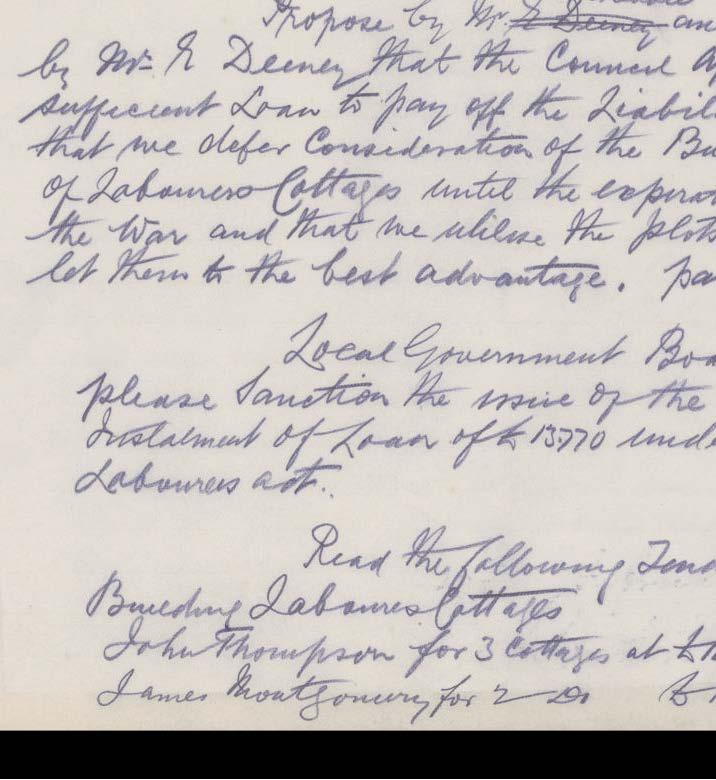 Propose by Mr. E Deeney an
by Mr E Deeney that the Council A
sufficient Loan to pay off the Liabil
that we defer Consideration of the Bu
of Labourers Cottages until the expirat
the War and that we utilise the plots
let them to the best advantage. pa
Local Government Boa
please Sanction the issue of the
Instalment of Loan of £13770 unde
Labourers act.
Read the following Tend
Building Labourers Cottages
John Thompson for 3 Cottages at £1
James Montgomery for 2 Do £1